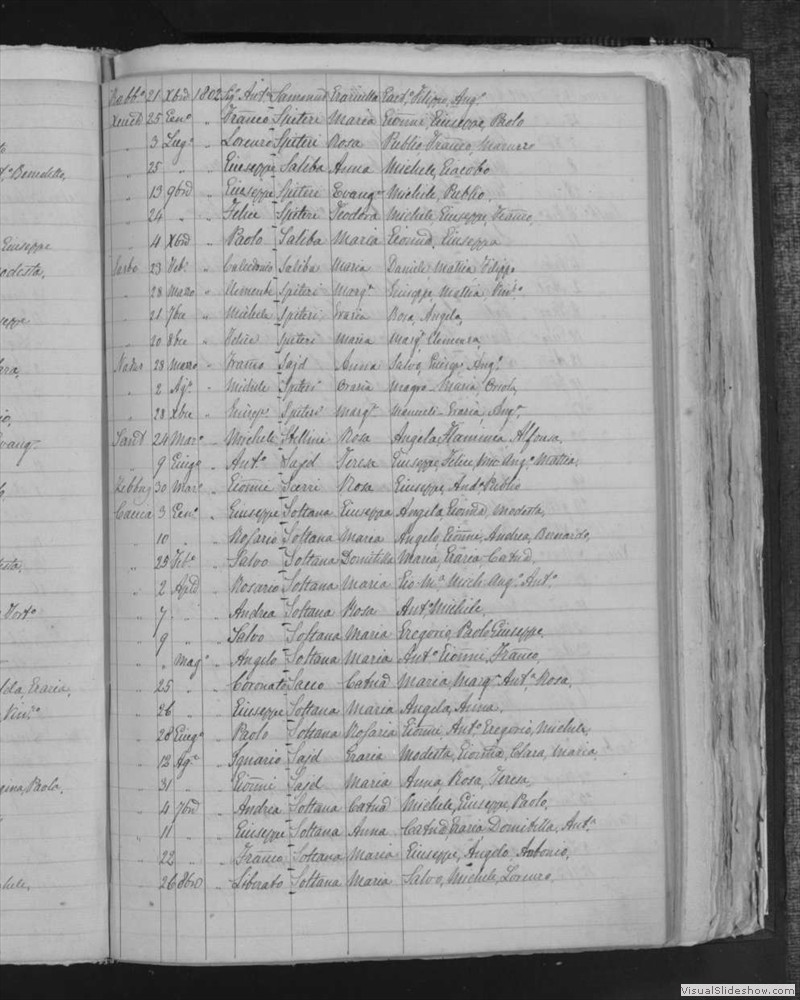 Benedetto,
Giuseppe
odesta,
seppe
Rabbto 21 Xbre 1802 Sg. Anto Samanud Grazzulla Gaeto Filippo, Ango
Xeuch 25 Geno " Franco Spiteri Maria Gionni, Giuseppe, Paolo
" 3 Lugo " Lorenzo Spiteri Rosa Publio Franco
" 25 " " Giuseppe Saliba Anna Michele, Giacobo
" 13 9bre " Giuseppe Spiteri Evanga Michele, Publio
" 24 " " Felice Spiteri Teodora Michele, Giuseppe, Franco,
" 4 Xbre " Paolo Saliba Maria Gionna, Giuseppa
Garbo 23 Febo " Calcedonio Saliba Maria Daniele Mattia Filippo
" 28 Marzo " Clemente Spiteri Marga Giuseppe, Mattia, Vinco
" 21 7bre " Michele Spiteri Grazia Rosa, Angela,
" 20 8bre " Felice Spiteri Maria Marga Clemenza,
Nadur 28 Marzo " Franco Said Anna Salvo, Giusepe, Ango
" 2 Ago " Michele Spiteri Grazia Magro - Maria,
" 28 Xbre " Giuseppe Spiteri Marga Manueli - Grazia, Ango
Sant 24 Maro " Michele Stellini Rosa Angela, Flaminea Alfonsa,
" 9 Giugo " Anto Said Teresa Giuseppe, Felice, Vinco Ango Mattia,
Zebbug 30 Maro " Gionni Scerri Rosa Giuseppe, Anda Publio
Caccia 3 Geno " Giuseppe Soltana Giuseppa Angela, Gionna, Modesta,
" 10 " " Rosario Soltana Maria Angelo, Gionni, Andrea, Bernardo,
" 25 Febo " Salvo Soltana Domitilla Maria, Grazia Catna,
" 2 Aple " Rosario Soltana Maria Gio Ma Mich. Ango Anto
" 7 " " Andrea Soltana Rosa Anto Michele,
" 9 " " Salvo Soltana Maria Gregorio, Paolo Giuseppe,
" " Mago " Angelo Soltana Maria Anto Gionni, Franco,
" 25 " " Coronato Sacco Catna Maria, Marga Anta Rosa,
" 26 " " Giuseppe Soltana Maria Angela, Anna,
" 28 Giugo " Paolo Soltana Rosaria Gionni, Anto Gregorio, Michele,
" 12 Ago " Ignazio Said Grazia Modesta, Gionna, Clara, Maria,
" 31 " " Gionni Said Maria Anna Rosa, Teresa,
" 4 7bre " Andrea Soltana Catna Michele, Giuseppe, Paolo,
" 11 " " Giuseppe Soltana Anna Catna Grazia Domitilla, Anta
" 22 " " Franco Soltana Maria Giuseppe, Angelo Antonio,
" 26 8bre " Liberato Soltana Maria Salvo, Michele, Lorenzo,
VisualSlideshow.com